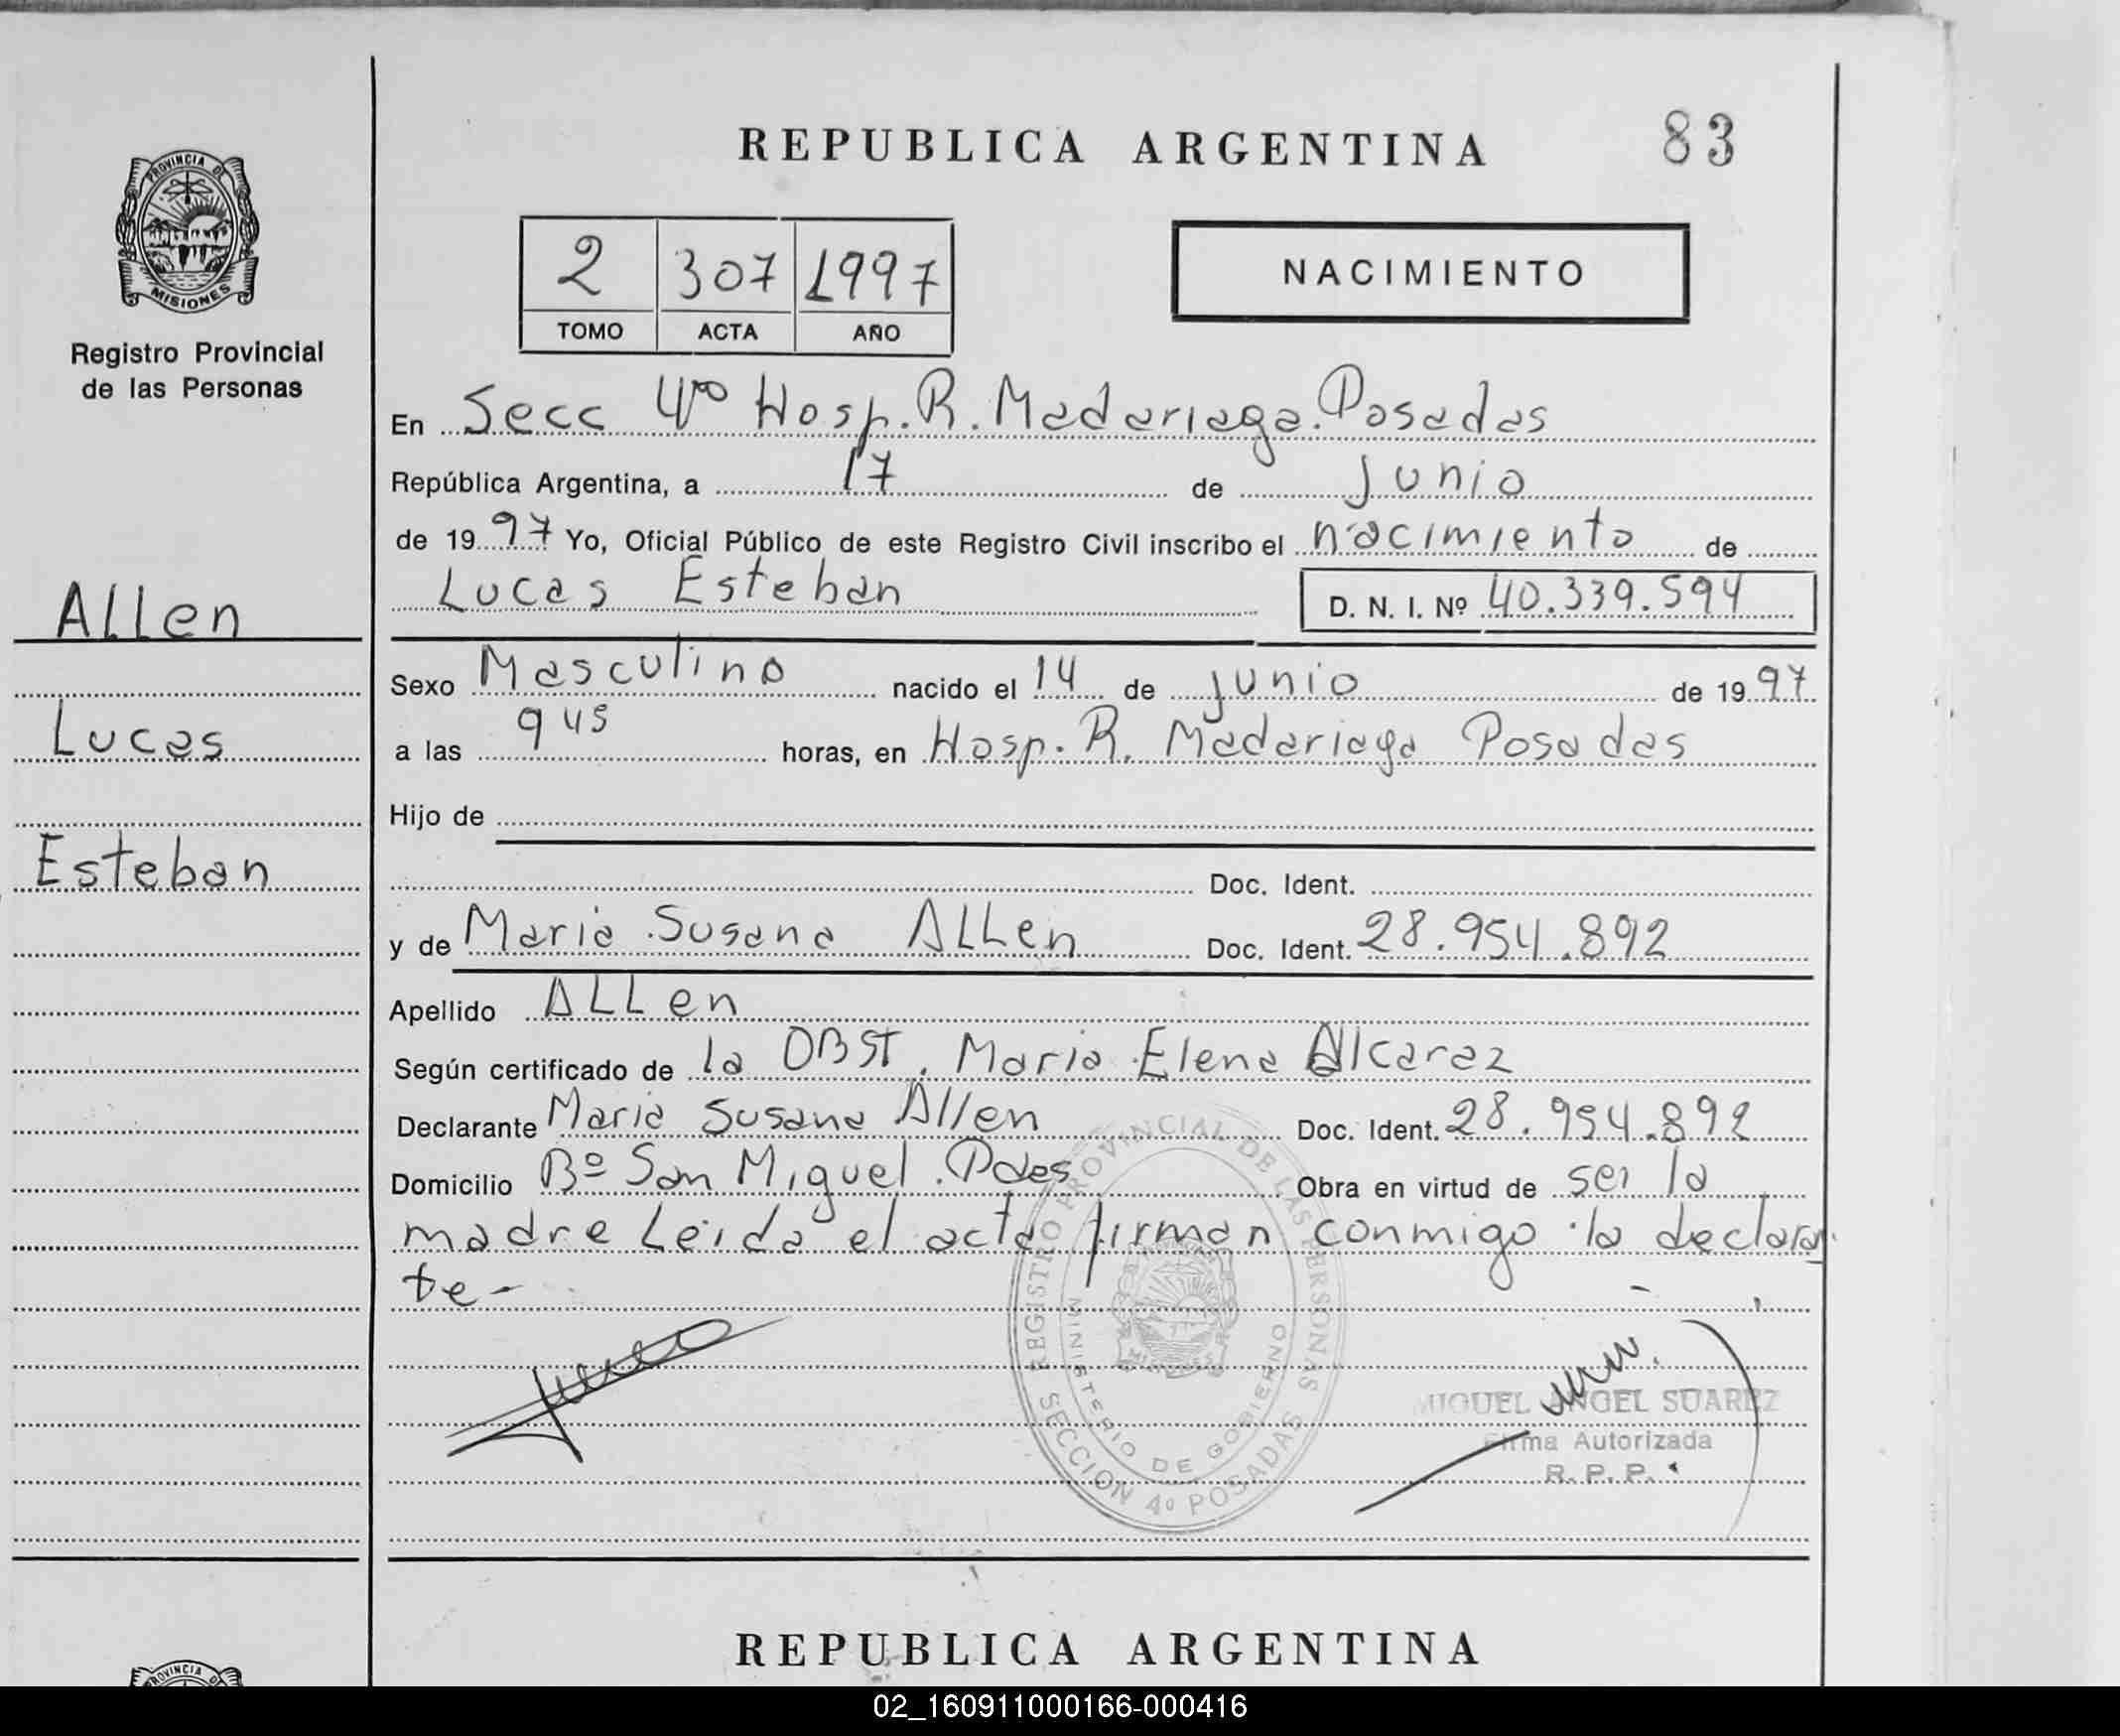 REPUBLICA ARGENTINA 83
PROVINCIA DE
MISIONES
Registro Provincial
de las Personas
2 307 1997
TOMO ACTA AÑO
NACIMIENTO
En Secc 4ta Hosp. R. Madariaga. Posadas
República Argentina, a 17 de Junio
de 1997 Yo, Oficial Público de este Registro Civil inscribo el nacimiento de
Lucas Esteban D. N. I. Nº 40.339.594
Allen
Sexo Masculino nacido el 14 de junio de 1997
Lucas
a las 945 horas, en Hosp. R. Madariaga Posadas
Hijo de
Esteban
Doc. Ident.
y de Maria Susana Allen Doc. Ident. 28.954.892
Apellido Allen
Según certificado de la OBST. Maria Elena Alcaraz
Declarante Maria Susana Allen Doc. Ident. 28.954.892
Domicilio Bº San Miguel. Pdas Obra en virtud de ser la
madre Leida el acta firman conmigo la declaran
te-
REGISTRO PROVINCIAL DE LAS PERSONAS
MINISTERIO DE GOBIERNO
SECCION 4º POSADAS
MIGUEL ANGEL SUAREZ
Firma Autorizada
R. P. P.
REPUBLICA ARGENTINA
PROVINCIA
02_160911000166-000416